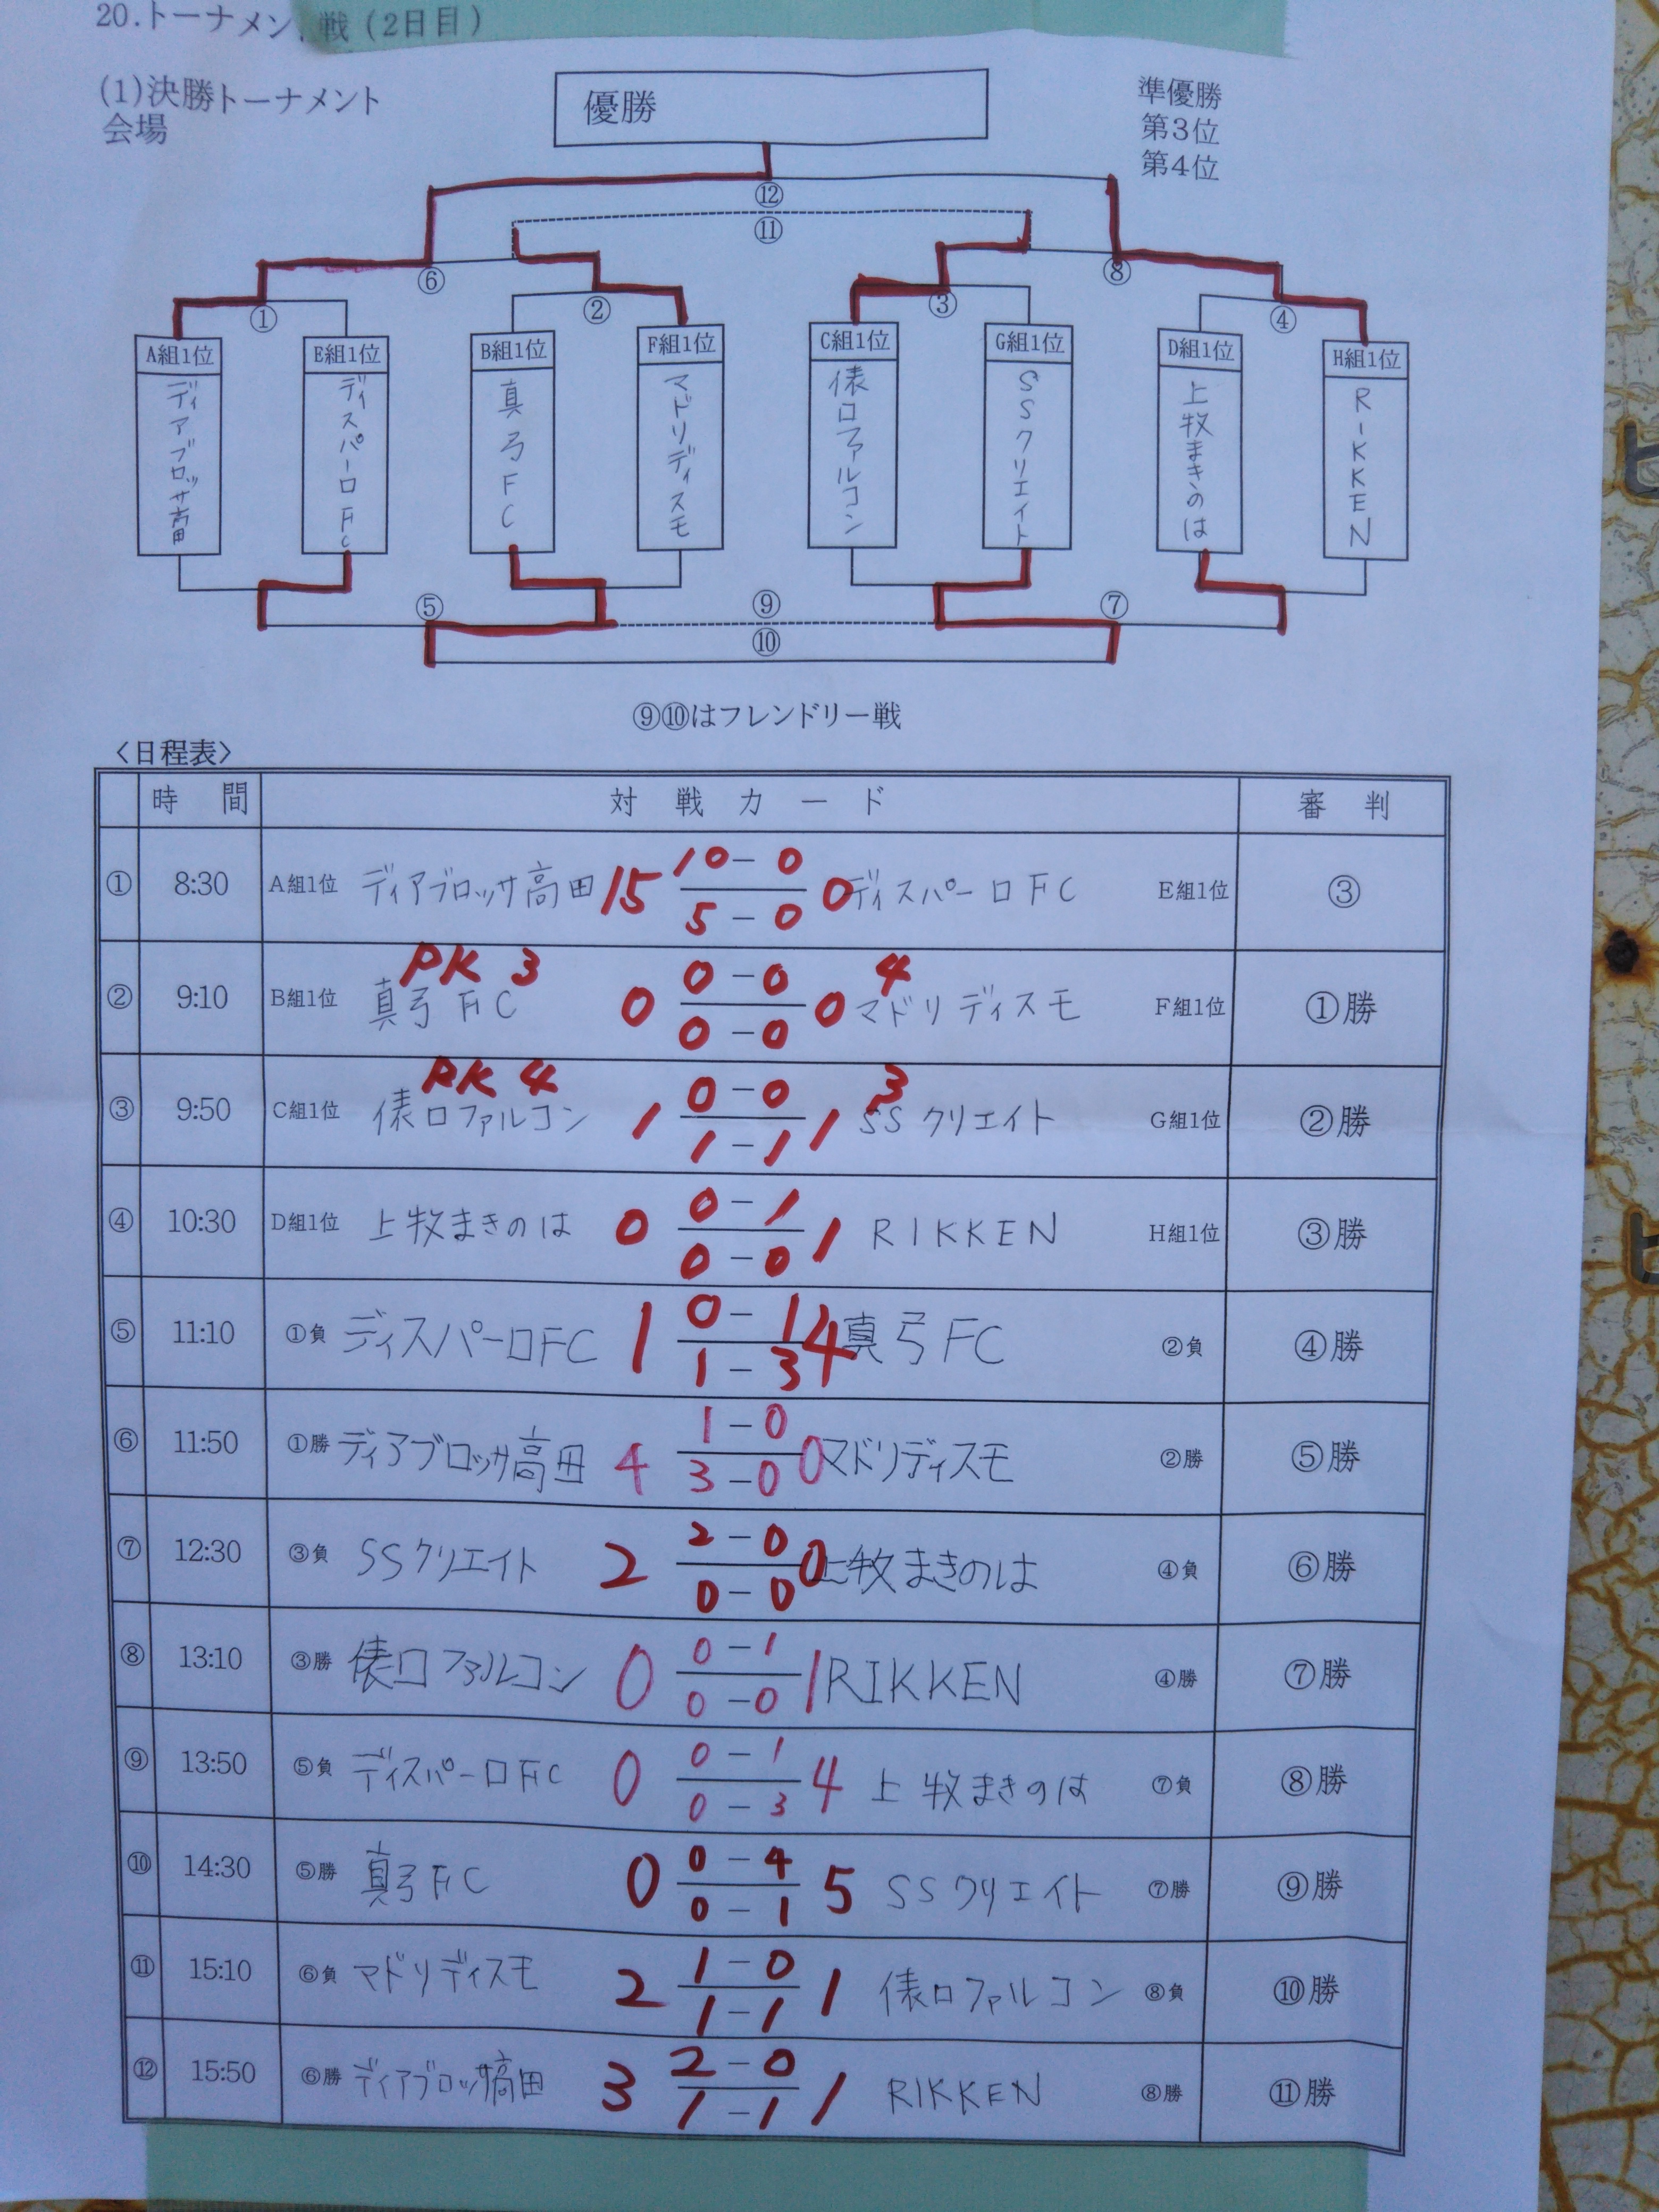 20.トーナメン 戦(2日目)
(1)決勝トーナメント
会場
優勝
準優勝
第3位
第4位
⑫
⑪
⑥ ⑧
① ② ③ ④
A組1位 E組1位 B組1位 F組1位 C組1位 G組1位 D組1位 H組1位
ディアブロッサ高田 ディスパーロFC 真弓FC マドリディスモ 俵口ファルコン SSクリエイト 上牧まきのは RIKKEN
⑤ ⑨ ⑦
⑩
⑨⑩はフレンドリー戦
〈日程表〉
時 間 対 戦 カ ー ド 審 判
① 8:30 A組1位 ディアブロッサ高田 15 10-0 5-0 0 ディスパーロFC E組1位 ③
② 9:10 B組1位 真弓FC PK 3 0 0-0 0-0 0 4 マドリディスモ F組1位 ①勝
③ 9:50 C組1位 俵口ファルコン PK 4 1 0-0 1-1 1 3 SSクリエイト G組1位 ②勝
④ 10:30 D組1位 上牧まきのは 0 0-1 0-0 1 RIKKEN H組1位 ③勝
⑤ 11:10 ①負 ディスパーロFC 1 0-1 1-3 4 真弓FC ②負 ④勝
⑥ 11:50 ①勝 ディアブロッサ高田 4 1-0 3-0 0 マドリディスモ ②勝 ⑤勝
⑦ 12:30 ③負 SSクリエイト 2 2-0 0-0 0 上牧まきのは ④負 ⑥勝
⑧ 13:10 ③勝 俵口ファルコン 0 0-1 0-0 1 RIKKEN ④勝 ⑦勝
⑨ 13:50 ⑤負 ディスパーロFC 0 0-1 0-3 4 上牧まきのは ⑦負 ⑧勝
⑩ 14:30 ⑤勝 真弓FC 0 0-4 0-1 5 SSクリエイト ⑦勝 ⑨勝
⑪ 15:10 ⑥負 マドリディスモ 2 1-0 1-1 1 俵口ファルコン ⑧負 ⑩勝
⑫ 15:50 ⑥勝 ディアブロッサ高田 3 2-0 1-1 1 RIKKEN ⑧勝 ⑪勝